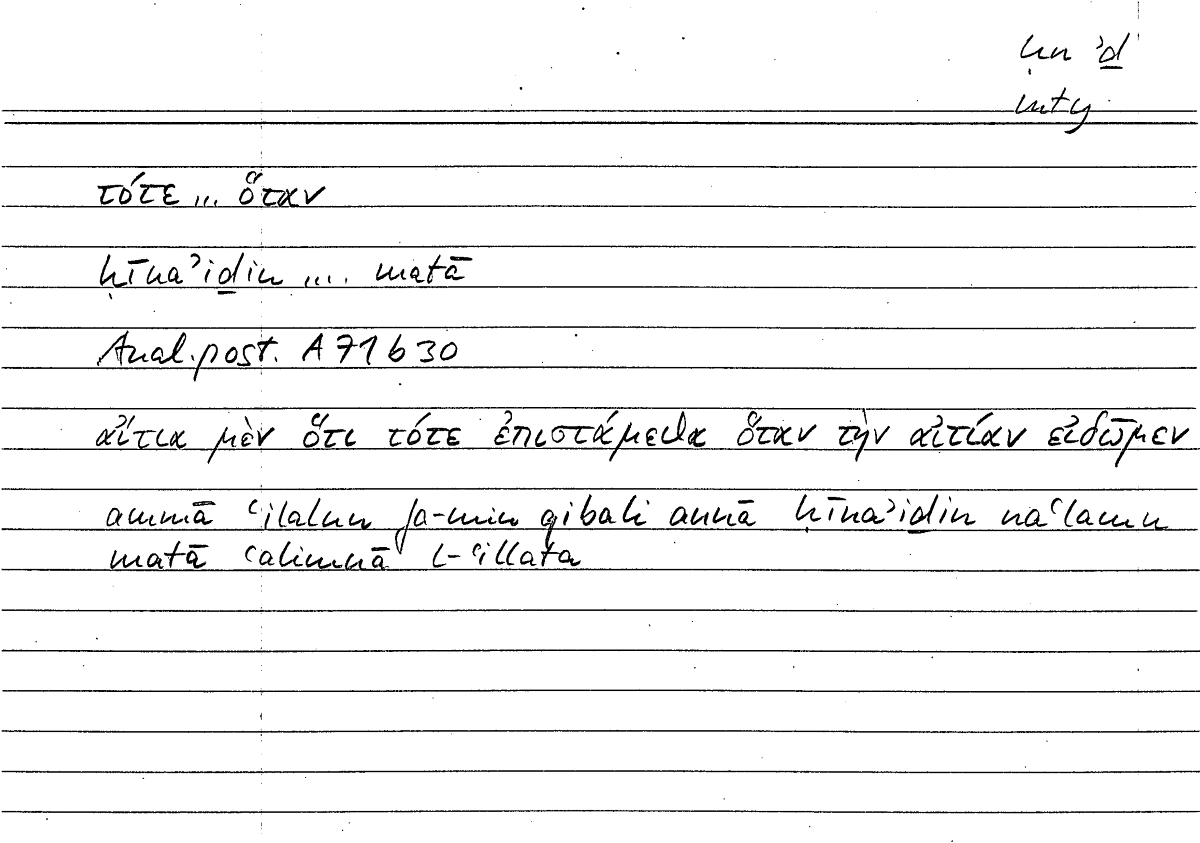 ḥn ʾḏ
mty
τότε ... ὅταν
ḥīnaʾiḏin .... matā
Anal. post. A 71 b 30
αἴτια μὲν ὅτι τότε ἐπιστάμεθα ὅταν τὴν αἰτίαν εἰδῶμεν
ammā ʿilalun fa-min qibali annā ḥīnaʾiḏin naʿlamu
matā ʿalimnā l-ʿillata